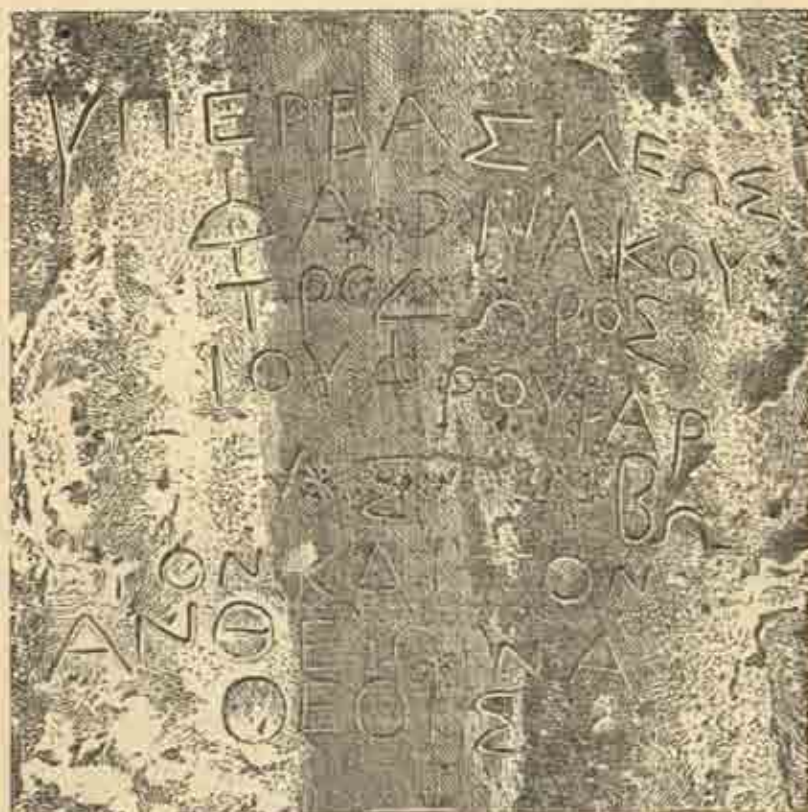 ΥΠΕΡΒΑΣΙΛΕΩΣ
ΦΑΡΝΑΚΟΥ
ΤΡΟΔΩΡΟΣ
ΙΟΥΦΡΟΥΡΑΡ
ΑΣ ΒΩ
ΟΝ ΚΑΙ ΟΝ
ΑΝΘΕΩΝΑ
ΘΕΟΙΣ